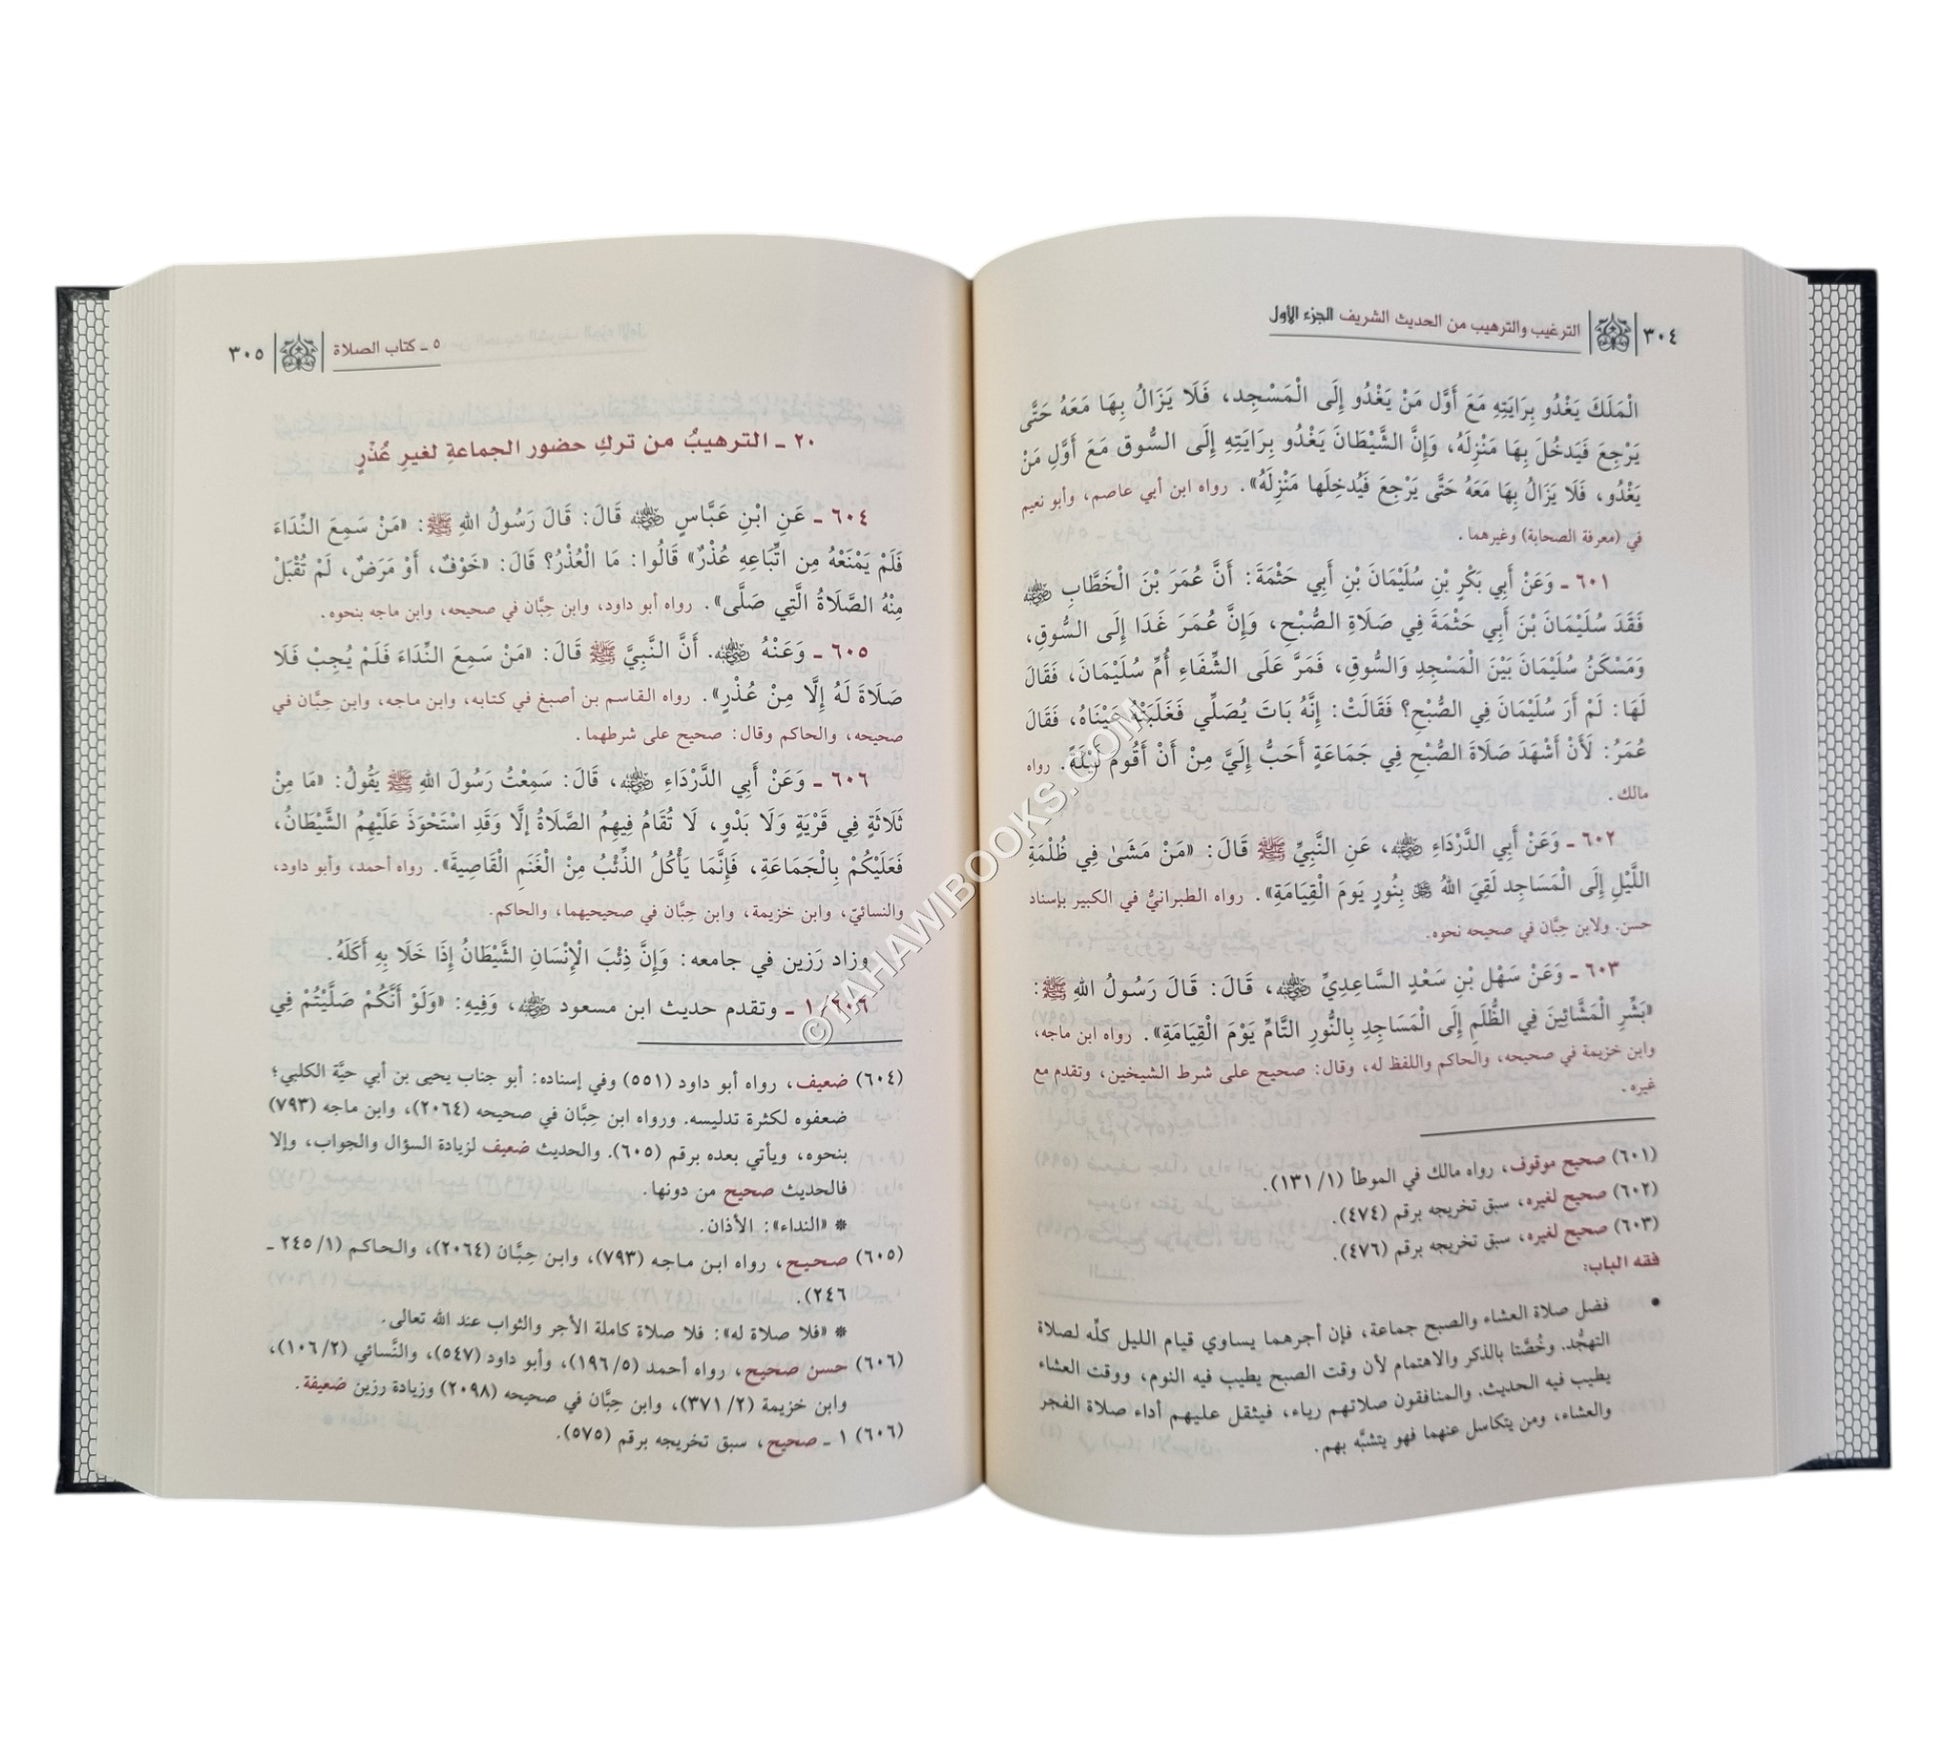 ٣٠٤ الترغيب والترهيب من الحديث الشريف الجزء الأول
الْمَلَكَ يَغْدُو بِرَايَتِهِ مَعَ أَوَّلِ مَنْ يَغْدُو إِلَى الْمَسْجِدِ، فَلَا يَزَالُ بِهَا مَعَهُ حَتَّى
يَرْجِعَ فَيَدخُلَ بِهَا مَنْزِلَهُ، وَإِنَّ الشَّيْطَانَ يَغْدُو بِرَايَتِهِ إِلَى السُّوقِ مَعَ أَوَّلِ مَنْ
يَغْدُو، فَلَا يَزَالُ بِهَا مَعَهُ حَتَّى يَرْجِعَ فَيُدخِلَها مَنْزِلَهُ». رواه ابن أبي عاصم، وأبو نعيم
في (معرفة الصحابة) وغيرهما.
٦٠١ ـ وَعَنْ أَبِي بَكْرِ بْنِ سُلَيْمَانَ بْنِ أَبِي حَثْمَةَ: أَنَّ عُمَرَ بْنَ الْخَطَّابِ رضي الله عنه
فَقَدَ سُلَيْمَانَ بْنَ أَبِي حَثْمَةَ فِي صَلَاةِ الصُّبْحِ، وَإِنَّ عُمَرَ غَدَا إِلَى السُّوقِ،
وَمَسْكَنُ سُلَيْمَانَ بَيْنَ الْمَسْجِدِ وَالسُّوقِ، فَمَرَّ عَلَى الشِّفَاءِ أُمِّ سُلَيْمَانَ، فَقَالَ
لَهَا: لَمْ أَرَ سُلَيْمَانَ فِي الصُّبْحِ؟ فَقَالَتْ: إِنَّهُ بَاتَ يُصَلِّي فَغَلَبَتْهُ عَيْنَاهُ، فَقَالَ
عُمَرُ: لَأَنْ أَشْهَدَ صَلَاةَ الصُّبْحِ فِي جَمَاعَةٍ أَحَبُّ إِلَيَّ مِنْ أَنْ أَقُومَ لَيْلَةً. رواه
مالك.
٦٠٢ ـ وَعَنْ أَبِي الدَّرْدَاءِ رضي الله عنه، عَنِ النَّبِيِّ ﷺ قَالَ: «مَنْ مَشَىٰ فِي ظُلْمَةِ
اللَّيْلِ إِلَى الْمَسَاجِدِ لَقِيَ اللهُ ﷻ بِنُورٍ يَومَ الْقِيَامَةِ». رواه الطبرانيُّ في الكبير بإسناد
حسن. ولابن حِبَّان في صحيحه نحوه.
٦٠٣ ـ وَعَنْ سَهْلِ بْنِ سَعْدٍ السَّاعِدِيِّ رضي الله عنه، قَالَ: قَالَ رَسُولُ اللهِ ﷺ:
«بَشِّرِ الْمَشَّائِينَ فِي الظُّلَمِ إِلَى الْمَسَاجِدِ بِالنُّورِ التَّامِّ يَوْمَ الْقِيَامَةِ». رواه ابن ماجه،
وابن خزيمة في صحيحه، والحاكم واللفظ له، وقال: صحيح على شرط الشيخين، وتقدم مع
غيره.
(٦٠١) صحيح موقوف، رواه مالك في الموطأ (١/ ١٣١).
(٦٠٢) صحيح لغيره، سبق تخريجه برقم (٤٧٤).
(٦٠٣) صحيح لغيره، سبق تخريجه برقم (٤٧٦).
فقه الباب:
• فضل صلاة العشاء والصبح جماعة، فإن أجرهما يساوي قيام الليل كلِّه لصلاة
التهجُّد. وخُصَّتا بالذكر والاهتمام لأن وقت الصبح يطيب فيه النوم، ووقت العشاء
يطيب فيه الحديث. والمنافقون صلاتهم رياء، فيثقل عليهم أداء صلاة الفجر
والعشاء، ومن يتكاسل عنهما فهو يتشبَّه بهم.
٥ ـ كتاب الصلاة ٣٠٥
٢٠ ـ الترهيبُ من تركِ حضور الجماعةِ لغيرِ عُذْرٍ
٦٠٤ ـ عَنِ ابْنِ عَبَّاسٍ رضي الله عنه قَالَ: قَالَ رَسُولُ اللهِ ﷺ: «مَنْ سَمِعَ النِّدَاءَ
فَلَمْ يَمْنَعْهُ مِن اتِّبَاعِهِ عُذْرٌ» قَالُوا: مَا الْعُذْرُ؟ قَالَ: «خَوْفٌ، أَوْ مَرَضٌ، لَمْ تُقْبَلْ
مِنْهُ الصَّلَاةُ الَّتِي صَلَّى». رواه أبو داود، وابن حِبَّان في صحيحه، وابن ماجه بنحوه.
٦٠٥ ـ وَعَنْهُ رضي الله عنه. أَنَّ النَّبِيَّ ﷺ قَالَ: «مَنْ سَمِعَ النِّدَاءَ فَلَمْ يُجِبْ فَلَا
صَلَاةَ لَهُ إِلَّا مِنْ عُذْرٍ». رواه القاسم بن أصبغ في كتابه، وابن ماجه، وابن حِبَّان في
صحيحه، والحاكم وقال: صحيح على شرطهما.
٦٠٦ ـ وَعَنْ أَبِي الدَّرْدَاءِ رضي الله عنه، قَالَ: سَمِعْتُ رَسُولَ اللهِ ﷺ يَقُولُ: «مَا مِنْ
ثَلَاثَةٍ فِي قَرْيَةٍ وَلَا بَدْوٍ، لَا تُقَامُ فِيهِمُ الصَّلَاةُ إِلَّا وَقَدِ اسْتَحْوَذَ عَلَيْهِمُ الشَّيْطَانُ،
فَعَلَيْكُمْ بِالْجَمَاعَةِ، فَإِنَّمَا يَأْكُلُ الذِّئْبُ مِنْ الْغَنَمِ الْقَاصِيةَ». رواه أحمد، وأبو داود،
والنسائيّ، وابن خزيمة، وابن حِبَّان في صحيحيهما، والحاكم.
وزاد رَزين في جامعه: وَإِنَّ ذِئْبَ الْإِنْسَانِ الشَّيْطَانُ إِذَا خَلَا بِهِ أَكَلَهُ.
٦٠٦ ـ ١ ـ وتقدم حديث ابن مسعود رضي الله عنه، وَفِيهِ: «وَلَوْ أَنَّكُمْ صَلَّيْتُمْ فِي
(٦٠٤) ضعيف، رواه أبو داود (٥٥١) وفي إسناده: أبو جناب يحيى بن أبي حيَّة الكلبي؛
ضعفوه لكثرة تدليسه. ورواه ابن حِبَّان في صحيحه (٢٠٦٤)، وابن ماجه (٧٩٣)
بنحوه، ويأتي بعده برقم (٦٠٥). والحديث ضعيف لزيادة السؤال والجواب، وإلا
فالحديث صحيح من دونها.
* «النداء»: الأذان.
(٦٠٥) صحيح، رواه ابن ماجه (٧٩٣)، وابن حِبَّان (٢٠٦٤)، والحاكم (١/ ٢٤٥ ـ
٢٤٦).
* «فلا صلاة له»: فلا صلاة كاملة الأجر والثواب عند الله تعالى.
(٦٠٦) حسن صحيح، رواه أحمد (٥/ ١٩٦)، وأبو داود (٥٤٧)، والنَّسائي (٢/ ١٠٦)،
وابن خزيمة (٢/ ٣٧١)، وابن حِبَّان في صحيحه (٢٠٩٨) وزيادة رزين ضعيفة.
(٦٠٦) ١ ـ صحيح، سبق تخريجه برقم (٥٧٥).
©TAHAWIBOOKS.COM